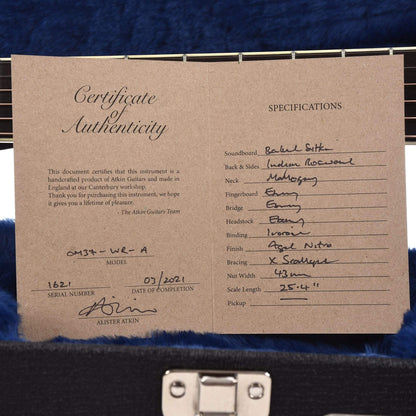 Certificate
of
Authenticity
This document certifies that this instrument is a
handcrafted product of Atkin Guitars and made in
England at our Canterbury workshop.
Thank you for purchasing this instrument, we hope
it gives you a lifetime of pleasure.
- The Atkin Guitars Team
OM37-WR-A
MODEL
1621 03/2021
SERIAL NUMBER DATE OF COMPLETION
Atkin
ALISTER ATKIN
SPECIFICATIONS
Soundboard Baked Sitka
Back & Sides Indian Rosewood
Neck Mahogany
Fingerboard Ebony
Bridge Ebony
Headstock Ebony
Binding Ivoroid
Finish Aged Nitro
Bracing X Scalloped
Nut Width 43mm
Scale Length 25.4"
Pickup